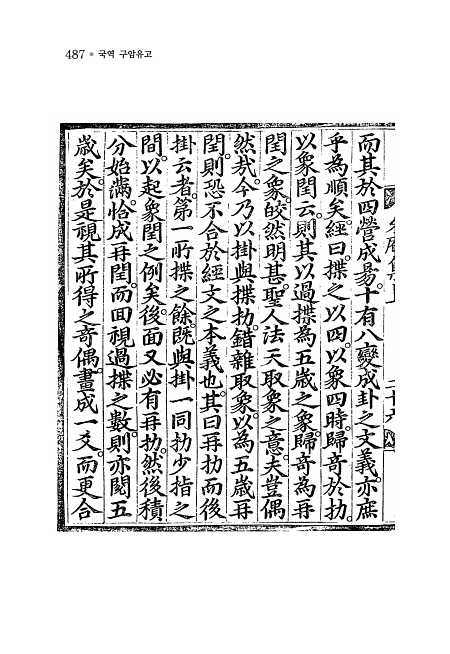 487 • 국역 구암유고
而其於四營成易十有八變成卦之文義亦庶
乎為順矣經曰揲之以四以象四時歸奇於扐
以象閏云則其以過揲為五歲之象歸奇為再
閏之象皎然明甚聖人法天取象之意夫豈偶
然哉今乃以掛與揲扐錯雜取象以為五歲再
閏則恐不合於經文之本義也其曰再扐而後
掛云者第一所揲之餘旣與掛一同扐少指之
間以起象閏之例矣後面又必有再扐然後積
分始滿恰成再閏而回視過揲之數則亦閱五
歲矣於是視其所得之奇偶畫成一爻而更合